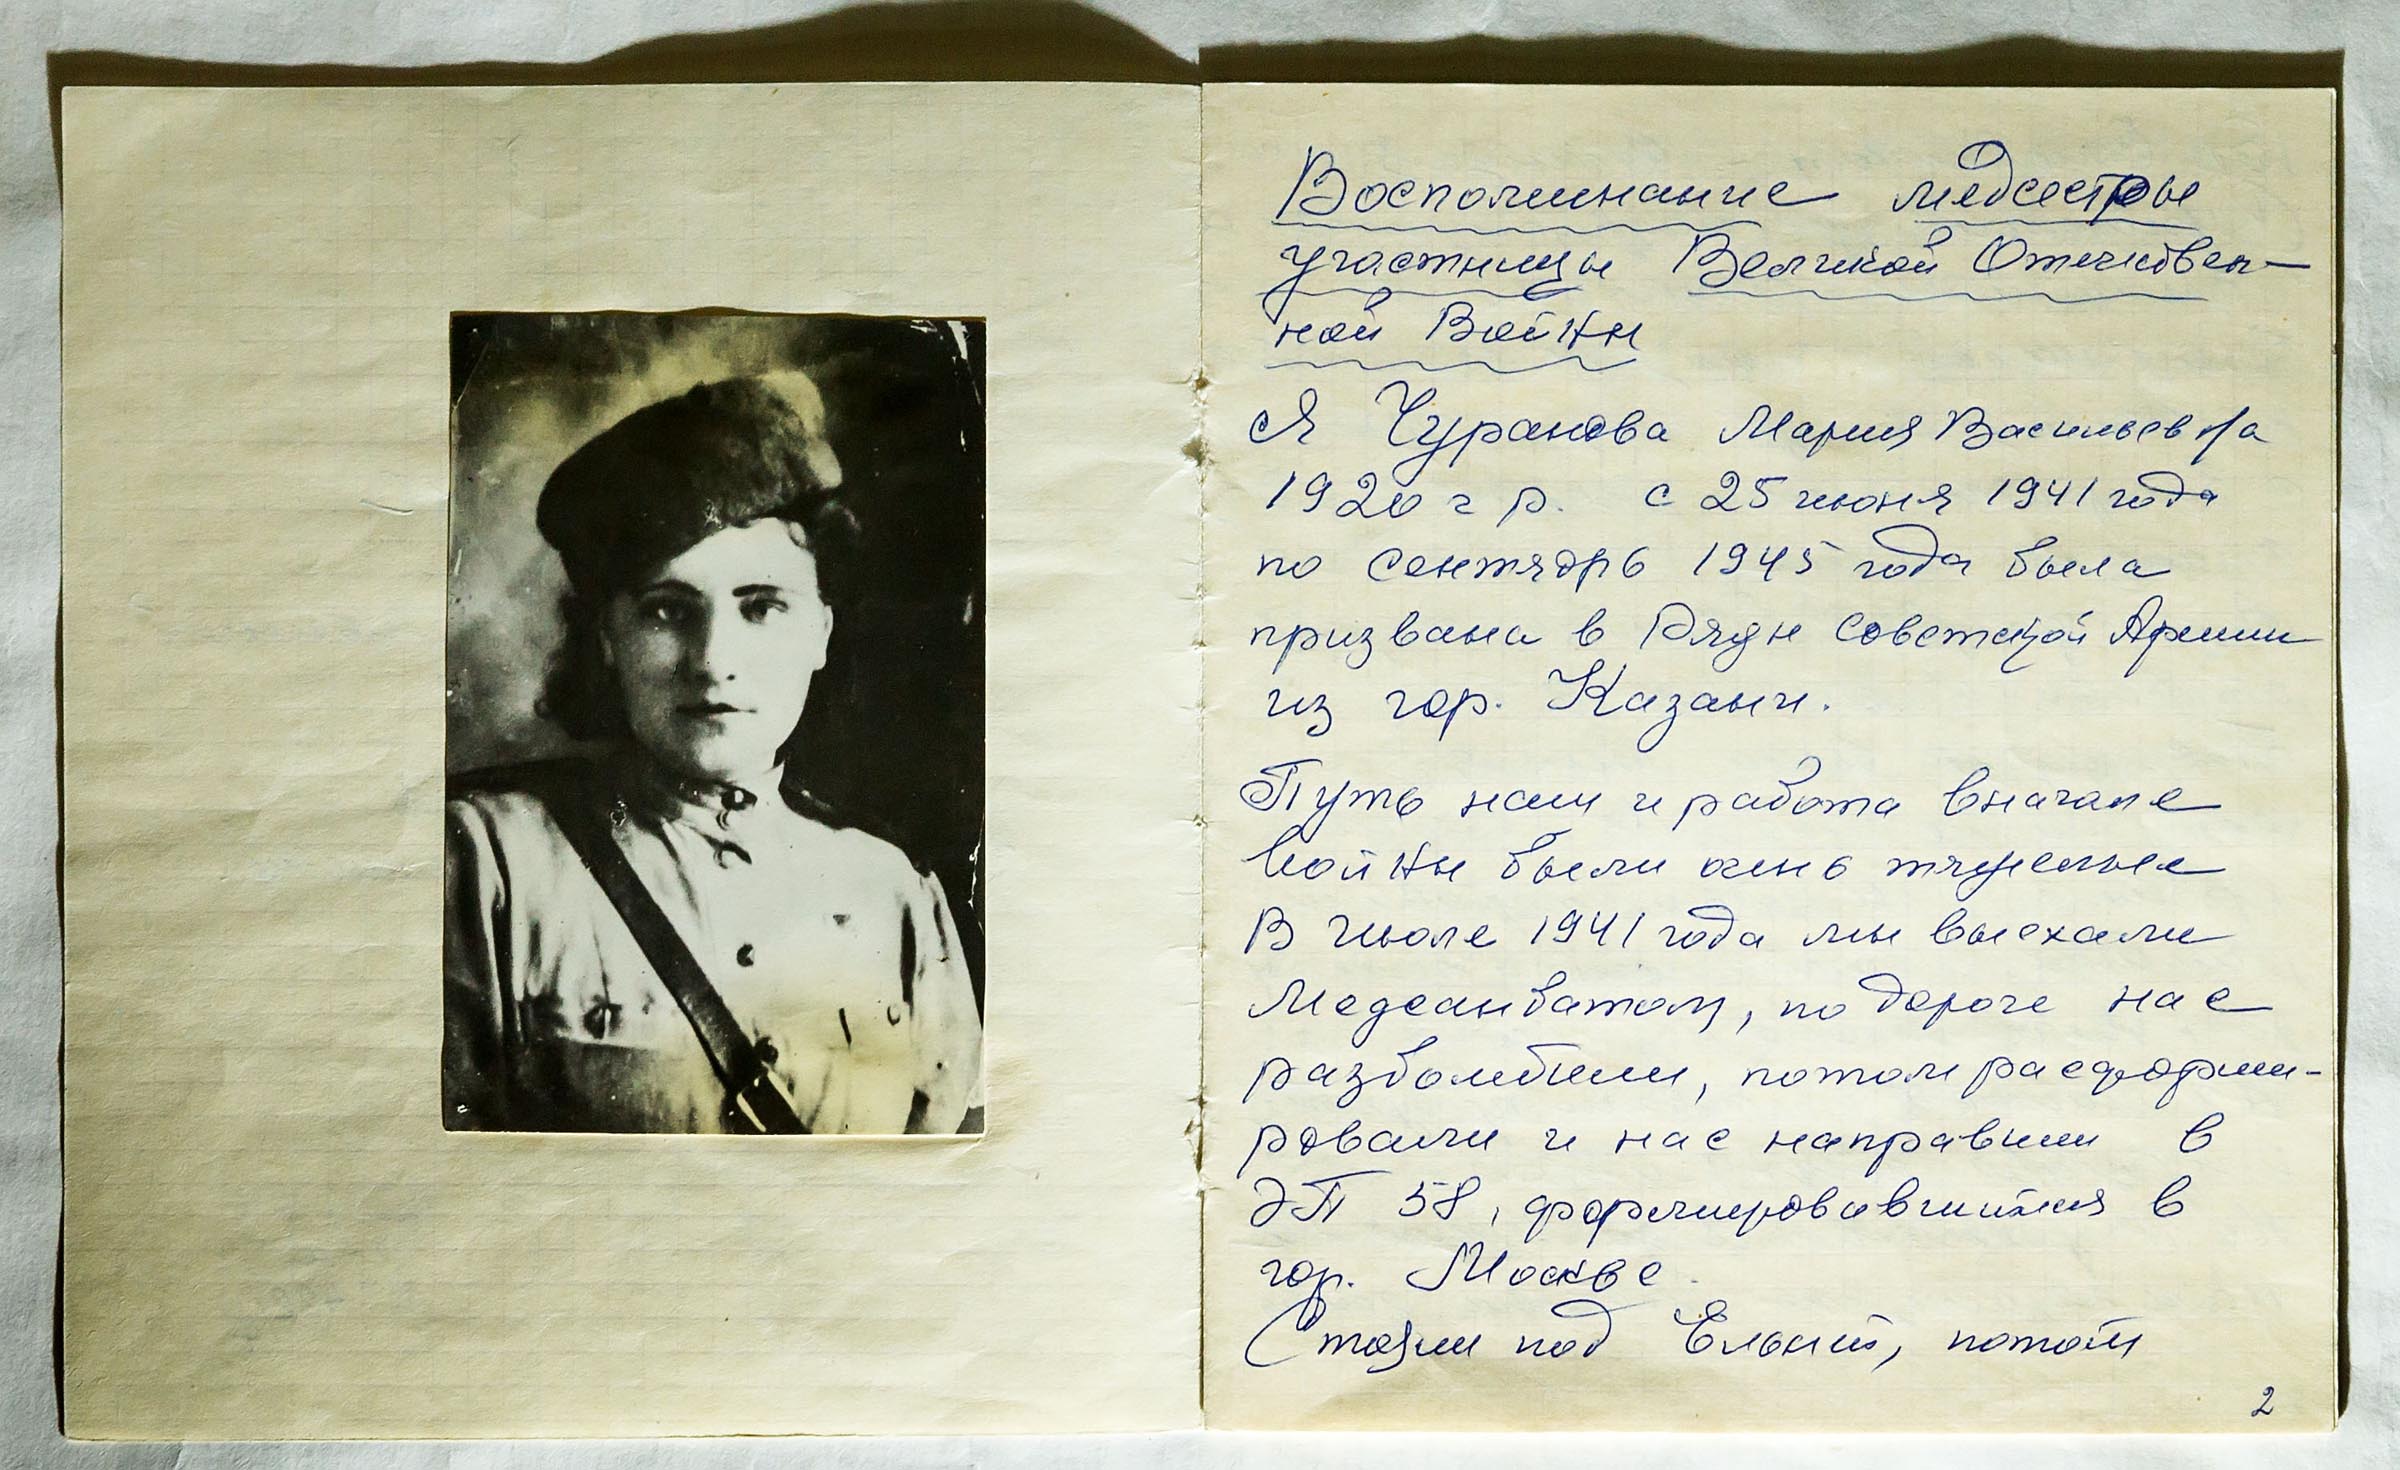 Воспоминание медсестры
участницы Великой Отечествен-
ной Войны
Я Чуранова Мария Васильевна
1920 г р. с 25 июня 1941 года
по сентябрь 1945 года была
призвана в Ряды Советской Армии
из гор. Казани.
Путь наш и работа вначале
войны были очень тяжелые
В июле 1941 года мы выехали
Медсанбатом, по дороге нас
разбомбили, потом расформи-
ровали и нас направили в
ЭП 58, формировавшийся в
гор. Москве.
Стояли под Ельней, потом
2